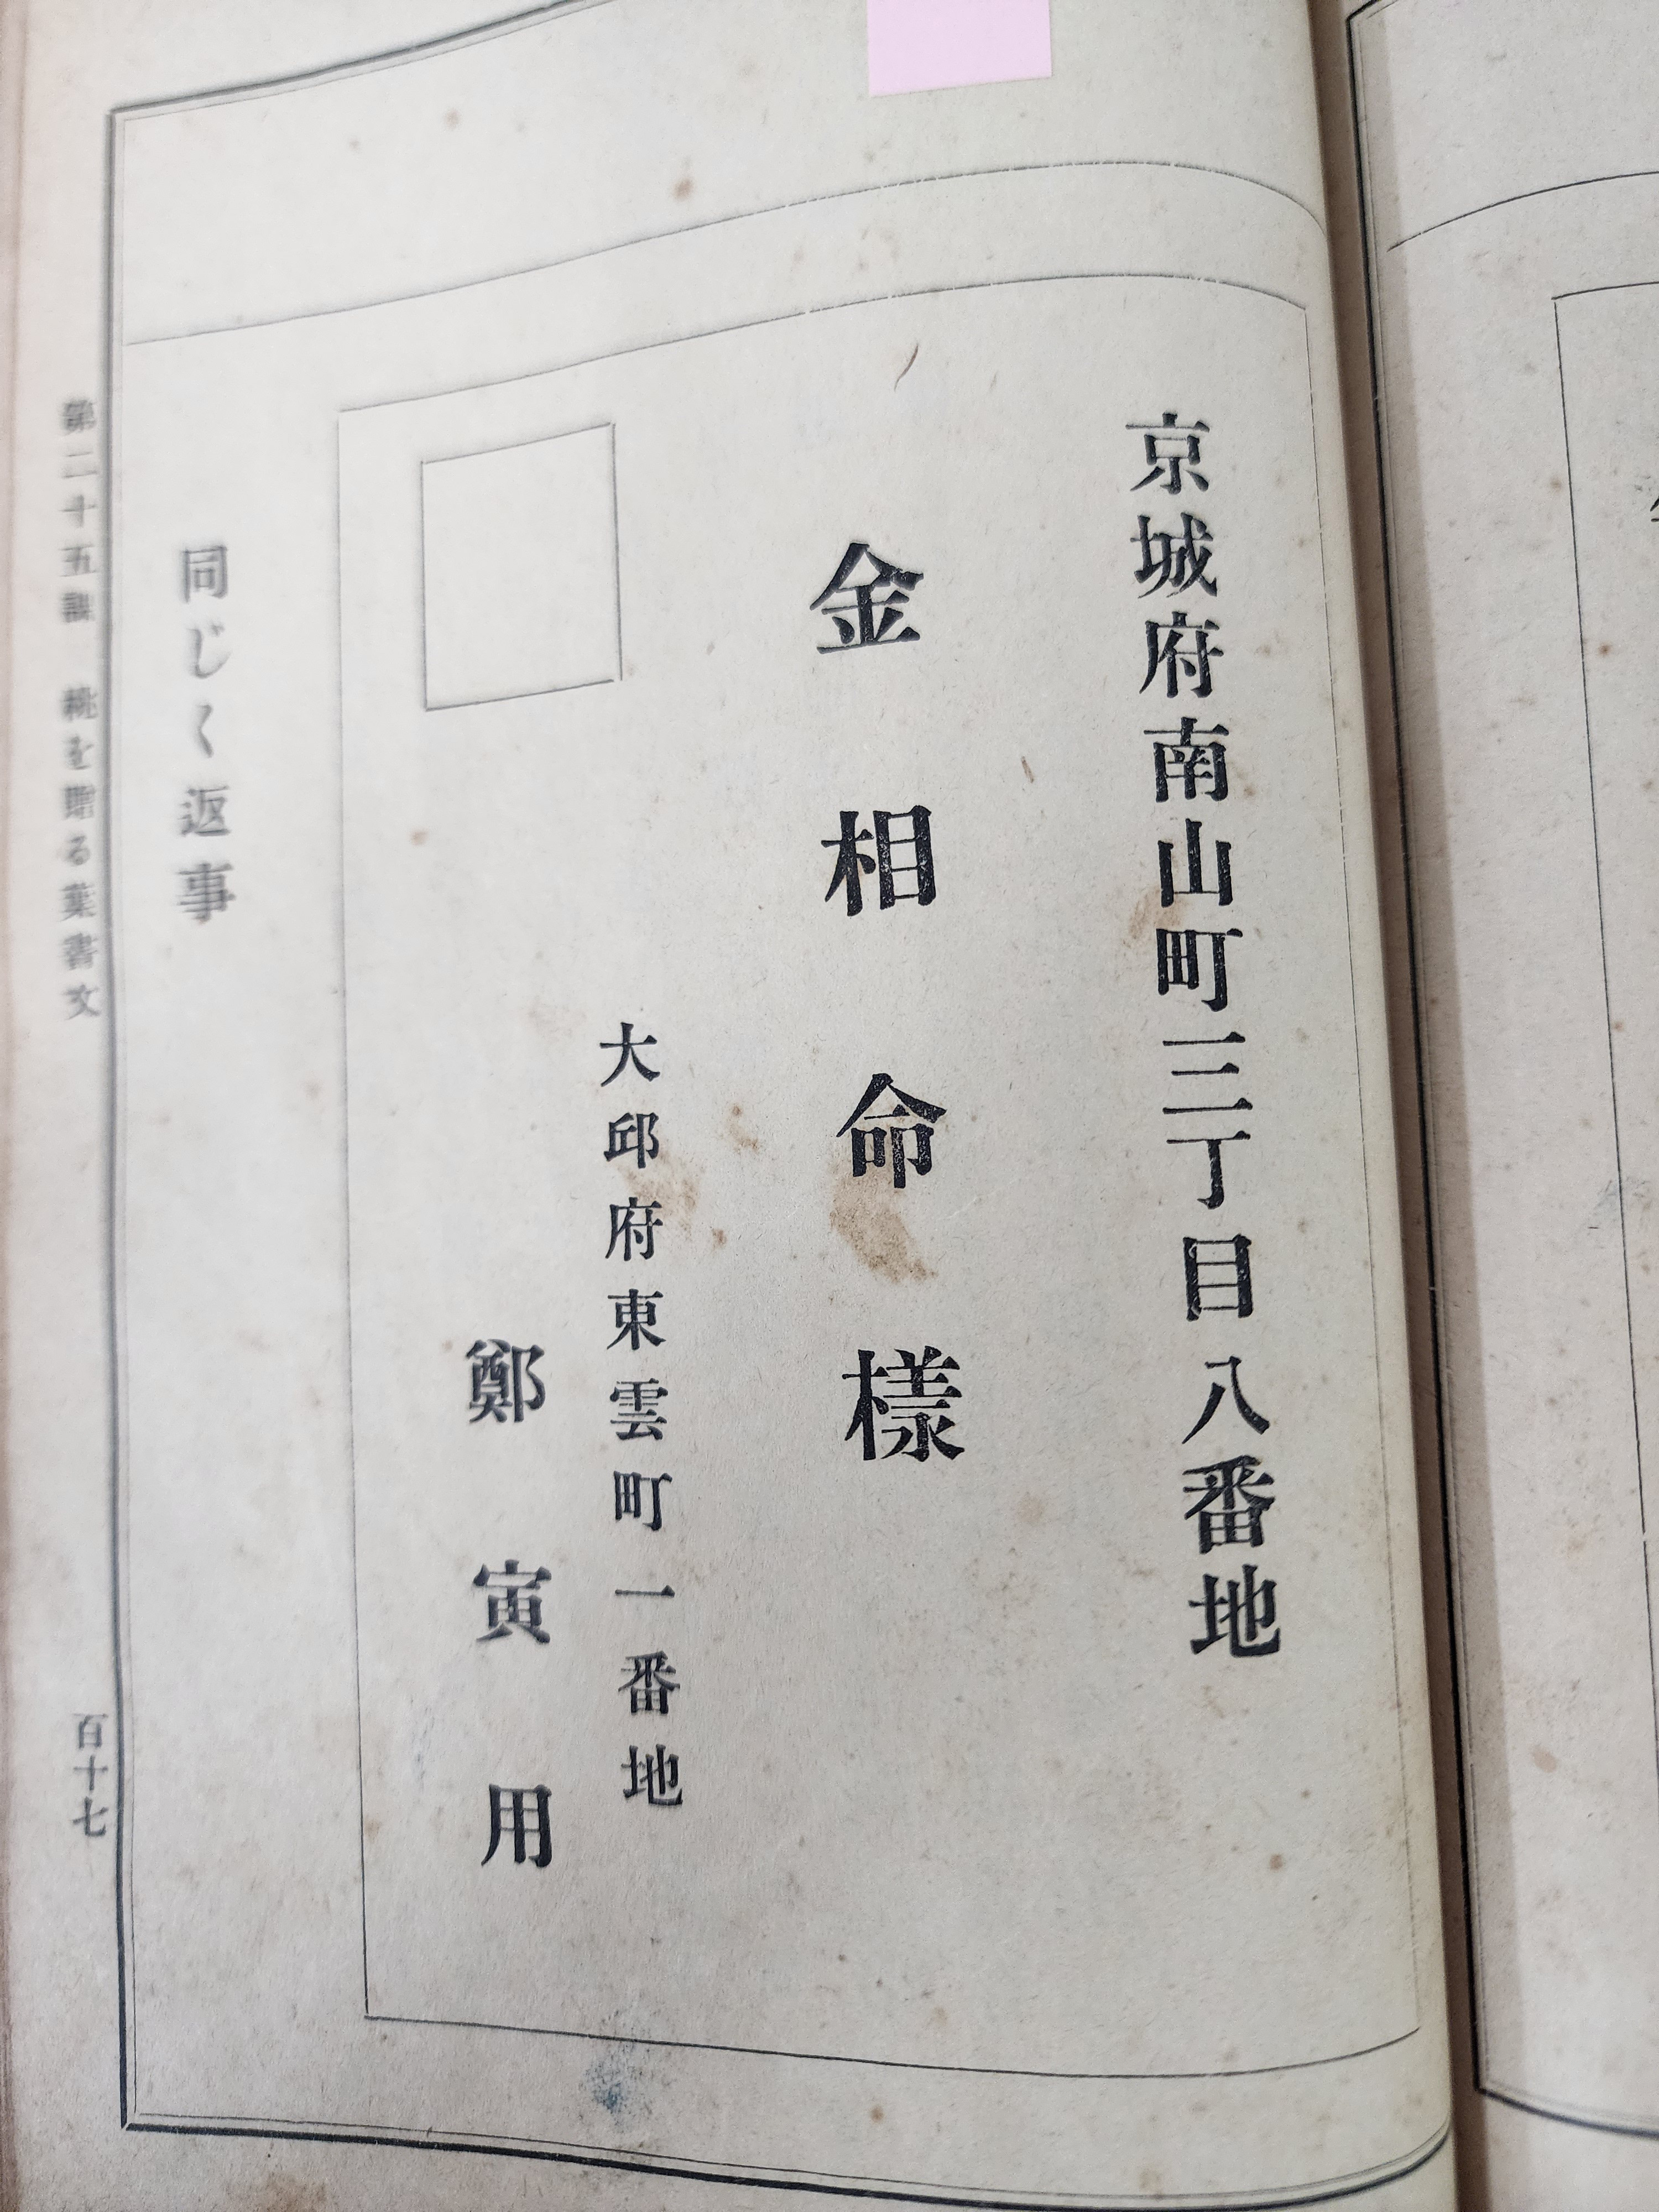 京城府南山町三丁目八番地
金相命樣
大邱府東雲町一番地
鄭寅用
同じく返事
第二十五課 桃を贈る葉書文
百十七